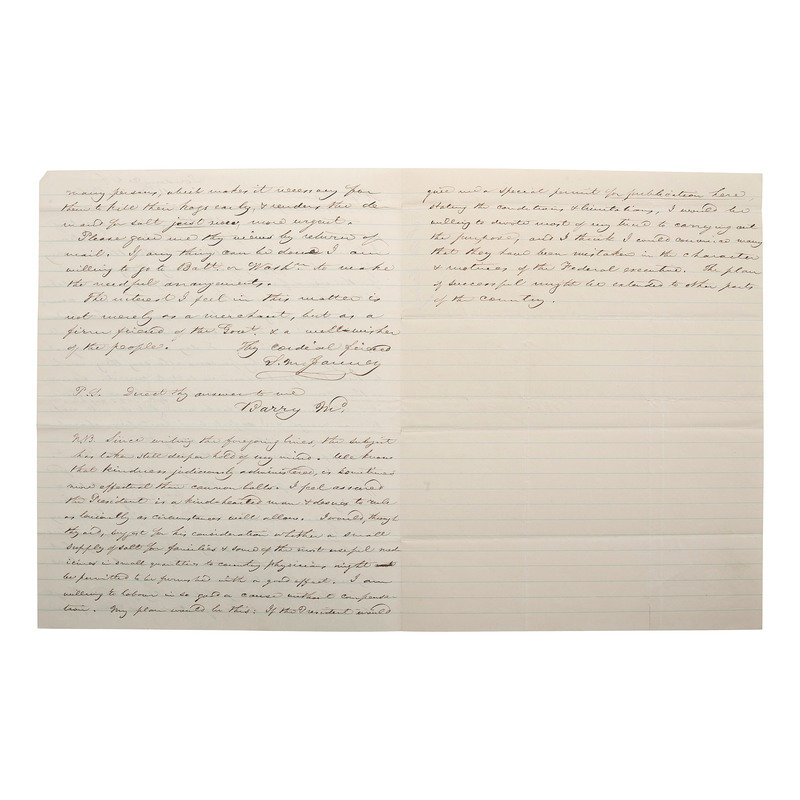 many persons, which makes it necessary for
them to kill their hogs early, & renders the de-
mand for salt just now, more urgent.
Please give me thy views by return of
mail. If any thing can be done I am
willing to go to Balt. or Washn. to make
the needful arrangements.
The interest I feel in this matter is
not merely as a merchant, but as a
firm friend of the Govt. & a well-wisher
of the people. Thy cordial friend
S. M. Janney
P.S. Direct thy answer to me
Barry Md.
N.B. Since writing the foregoing lines, the subject
has take still deeper hold of my mind. We know
that Kindness judiciously administered, is sometimes
more effectual than cannon balls. I feel assured
the President is a kind-hearted man & desires to rule
as leniently as circumstances will allow. I would, through
thy aid, suggest for his consideration whether a small
supply of salt for families & some of the most useful med-
icines in small quantities to country Physicians might
be permitted to be furnished with a good effect. I am
willing to labour in so good a cause without compensa-
tion. My plan would be this: If the President would
give me a special permit for publication here,
stating the conditions & limitations, I would be
willing to devote most of my time to carrying out
the purpose, and I think I could convince many
that they have been mistaken in the character
& motives of the Federal executive. The plan
if successful might be extended to other parts
of the country.